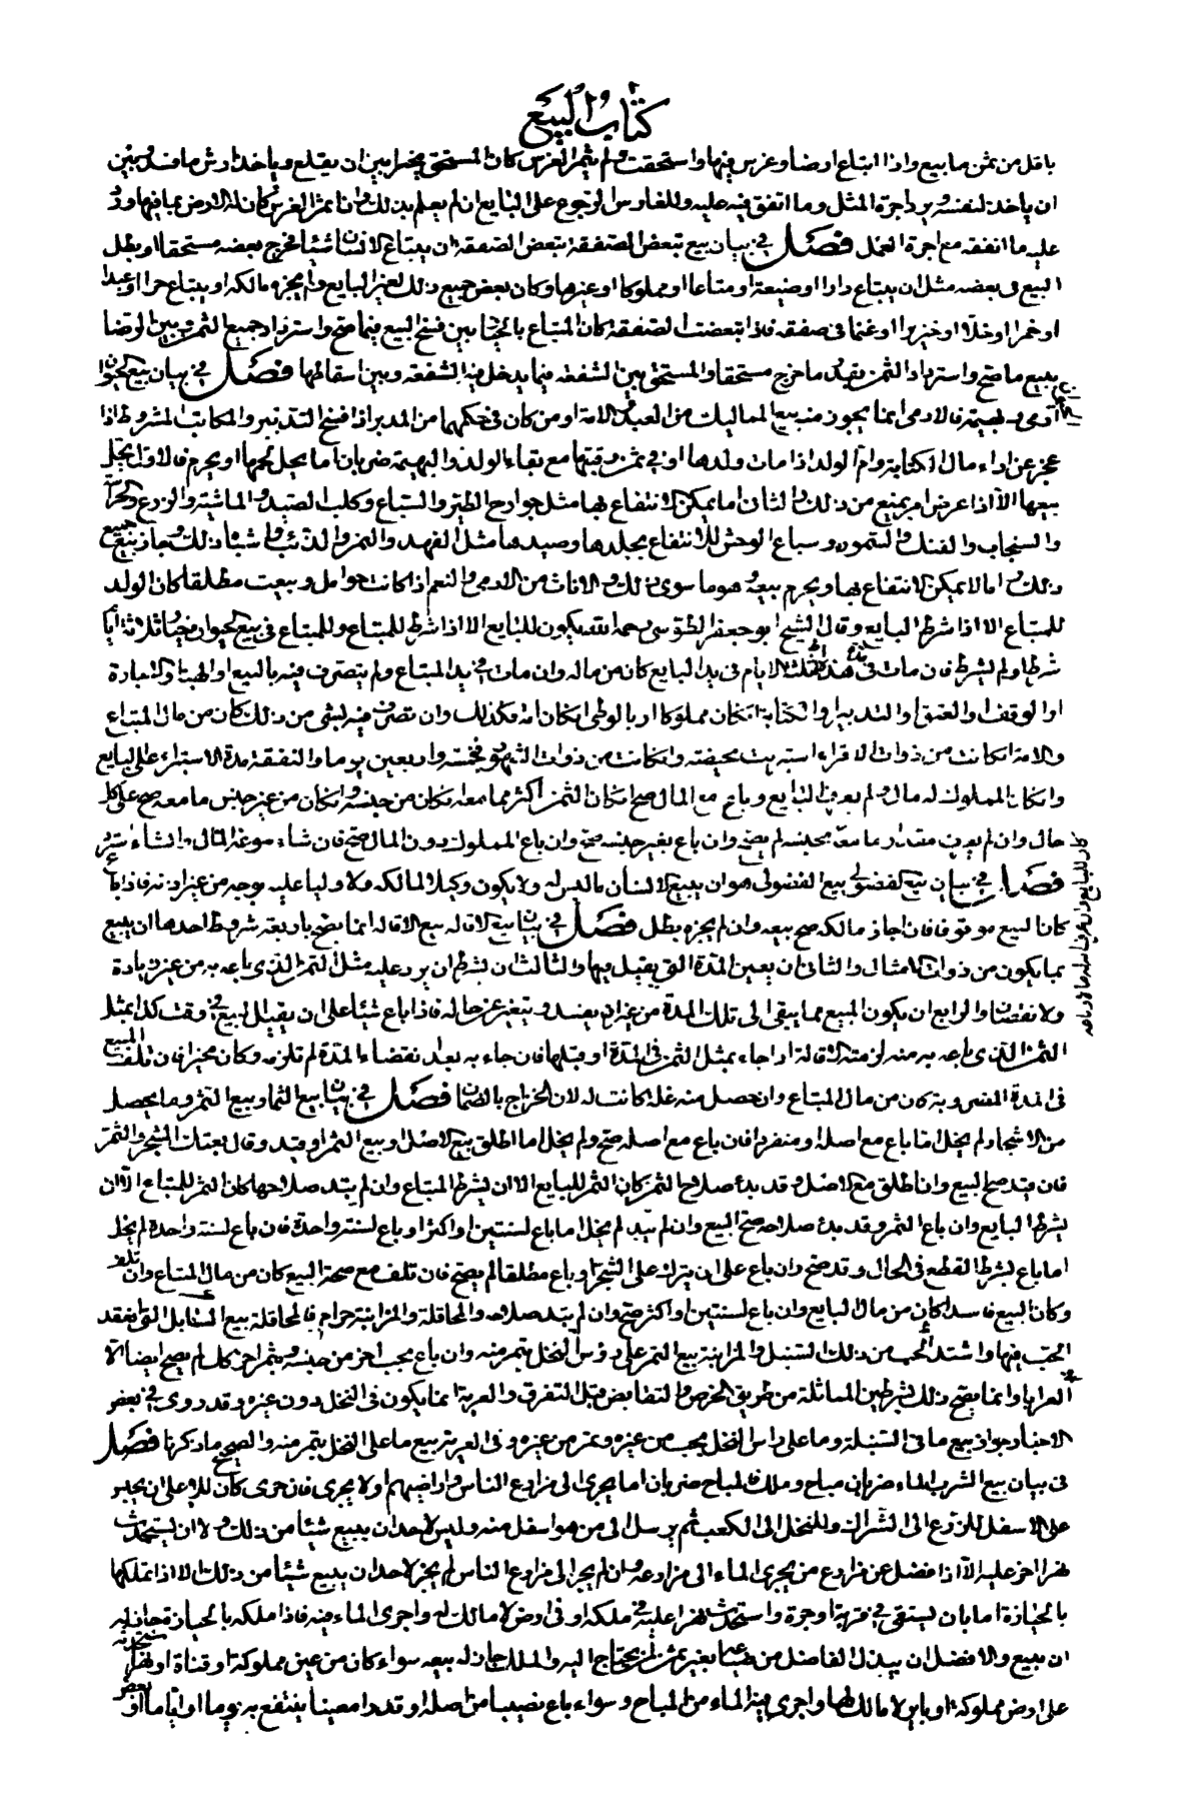 كتاب البيع
باقل من ثمن ما بيع واذا ابتاع ارضا وغرس فيها واستحقت ولم يثمر الغرس كان المستحق مخيرا بين ان يقلع وياخذ ارش ما فسد وبين
ان ياخذ لنفسه ويرد اجرة المثل وما انفق فيه عليه وللغارس الرجوع على البايع ان لم يعلم بذلك وان اثمر الغرس كان لمالك الارض بما فيها ورد
عليه ما انفقه مع اجرة العمل فصل في بيان بيع تبعض الصفقة تبعض الصفقة ان يبتاع الانسان شيئا فخرج بعضه مستحقا او بطل
البيع فى بعضه مثل ان يبتاع دارا او ضيعة او متاعا او مملوكا او غيرها وكان بعض جميع ذلك لغير البايع ولم يجزه مالكه او يبتاع حرا او عبدا
او خمرا او خلا او خنزيرا او غنما فى صفقة فاذا تبعضت الصفقة كان المبتاع بالخيار بين فسخ البيع فيما صح واسترداد جميع الثمن وبين الرضا
ببيع ما صح واسترداد الثمن بقدر ما خرج مستحقا والمستحق بين الشفعه فيما يدخل فيه الشفعه وبين اسقاطها فصل في بيان بيع الحيوان
آدمى وبهيمة فالادمى انما يجوز منه بيع المماليك من العبد والامة ومن كان فى حكمهما من المدبر اذا فسخ التدبير والمكاتب المشروط اذا
عجز عن اداء مال الكتابة وام الولد اذا مات ولدها او في ثمن رقبتها مع بقاء الولد والبهيمة ضربان ما يحل لحمها او يحرم فالاول يحل
بيعها الا اذا عرض امر يمنع من ذلك والثانى ما يمكن الانتفاع بها مثل جوارح الطير والسباع وكلب الصيد والماشية والزرع والحر
والسنجاب والفنك والسمور وسباع الوحش للانتفاع بجلدها وصيدها مثل الفهد والنمر والذئب واشباه ذلك وجاز بيع جميع
ذلك واما لا يمكن الانتفاع بها ويحرم بيعه وهو ما سوى ذلك والاناث من الادمى والنعم اذا كانت حوامل وبيعت مطلقا كان الولد
للمبتاع الا اذا شرط البايع وقال الشيخ ابو جعفر الطوسى رحمه الله يكون للبايع الا اذا شرط للمبتاع وللمبتاع فى بيع الحيوان خيار ثلاثة ايام
شرط او لم يشرط فان مات فى هذه الايام فى يد البايع كان من ماله وان مات في يد المبتاع ولم يتصرف فيه بالبيع او الهبة او الاجارة
او الوقف او العتق او التدبير او الكتابة ان كان مملوكا او بالوطى ان كان امة فكذلك وان تصرف فيه بشى من ذلك كان من مال المبتاع
والامة ان كانت من ذوات الاقراء استبريت بحيضة وان كانت من ذوات الشهور فخمسة واربعين يوما والنفقة مدة الاستبراء على البايع
وان كان المملوك له مال ولم يعرف البايع وباع مع المال صح ان كان الثمن اكثر مما معه ان كان من جنسه وان كان من غير جنس ما معه صح على كل
حال وان لم يعرف مقدار ما معه بجنسه لم يصح وان باع بغير جنسه صح وان باع المملوك دون المال صح فان شاء سوغه المال وان شاء استرد
فصل في بيان بيع الفضولى بيع الفضولى هو ان يبيع الانسان ما ليس له ولا يكون وكيلا لمالكه ولا وليا عليه بوجه من غير اذنه فاذا باع
كان البيع موقوفا فان اجاز مالكه صح بيعه وان لم يجزه بطل فصل في بيان بيع الاقالة بيع الاقالة انما يصح باربعة شروط احدها ان يبيع
بما يكون من ذوات الامثال والثانى ان يعين المدة التى يقيل فيها والثالث ان يشرط ان يرد عليه مثل الثمن الذى باعه به من غير زيادة
ولا نقصان والرابع ان يكون المبيع مما يبقى الى تلك المدة من غير ان يفسد ويتغير عن حاله فاذا باع شيئا على ان يقيل البيع في وقت كذا بمثل
الثمن الذى باعه به منه لزمته الاقالة اذا جاء بمثل الثمن فى المدة او قبلها فان جاء به بعد انقضاء المدة لم تلزمه وكان مخيرا فان تلف المبيع
فى المدة المضروبة كان من مال المبتاع وان حصل منه غلة كانت له لان الخراج بالضمان فصل في بيان بيع الثمار بيع الثمر وما يحصل
من الاشجار لم يخل اما باع مع اصله او منفردا فان باع مع اصله صح ولم يخل اما اطلق بيع الاصل او بيع الثمر او قيد وقال بعتك الشجر والثمر
فان قيد صح البيع وان اطلق مع الاصل وقد بدء صلاح الثمر كان الثمر للبايع الا ان يشرط المبتاع وان لم يبد صلاحها كان الثمر للمبتاع الا ان
يشرط البايع وان باع الثمر وقد بدء صلاحه صح البيع وان لم يبد لم يخل اما باع لسنتين او اكثر او باع لسنة واحدة فان باع لسنة واحدة لم يخل
اما باع بشرط القطع فى الحال وقد صح وان باع على ان يترك على الشجر او باع مطلقا لم يصح فان تلف مع صحة البيع كان من مال المبتاع وان تلف
وكان البيع فاسدا كان من مال البايع وان باع لسنتين او اكثر صح وان لم يبد صلاحه والمحاقلة والمزابنة حرام فالمحاقلة بيع السنابل التى انعقد
الحب فيها واشتد الحب من ذلك السنبل والمزابنة بيع الثمر على رؤس النخل بتمر منه وان باع بحب اخر من جنسه وبثمر اخر بكل لم يصح ايضا الا
العرايا وانما يصح ذلك بشرطين المماثلة من طريق الخرص والتقابض قبل التفرق والعرية انما يكون فى النخل دون غيره وقد روى في بعض
الاخبار جواز بيع ما فى السنبلة وما على راس النخل بحب من غيره وتمر من غيره وفى العرية بيع ما على النخل بتمر منه والصحيح ما ذكرنا فصل
فى بيان بيع الشرب الماء ضربان مباح وملك فالمباح ضربان اما يجرى الى مزارع الناس واراضيهم او لا يجرى فان جرى كان للاعلى ان يحبس
على الاسفل للزرع الى الشراك وللنخل الى الكعب ثم يرسل الى من هو اسفل منه وليس لاحد ان يبيع شيئا من ذلك ولا ان يستحدث
نهرا اخر عليه الا اذا فضل عن مزارع من يجرى الماء الى مزارعه وان لم يجر الى مزارع الناس لم يجز لاحد ان يبيع شيئا من ذلك الا اذا تملكها
بالحيازة اما بان يستقى في قربة او جرة واستحدث نهرا عليه في ملكه او فى ارض لا مالك له واجرى الماء فيه فاذا ملكه بالحيازة جاز له
ان يبيع والافضل ان يبذل الفاضل من بغير ثمن لمن يحتاج اليه والملك جاز له بيعه سواء كان من عين مملوكة او قناة او نهر
على ارض مملوكة او باين لا مالك لها واجرى فيه الماء من المباح وسواء باع نصيبا من اصله او قدرا معينا ينتفع به يوما او اياما او بعض